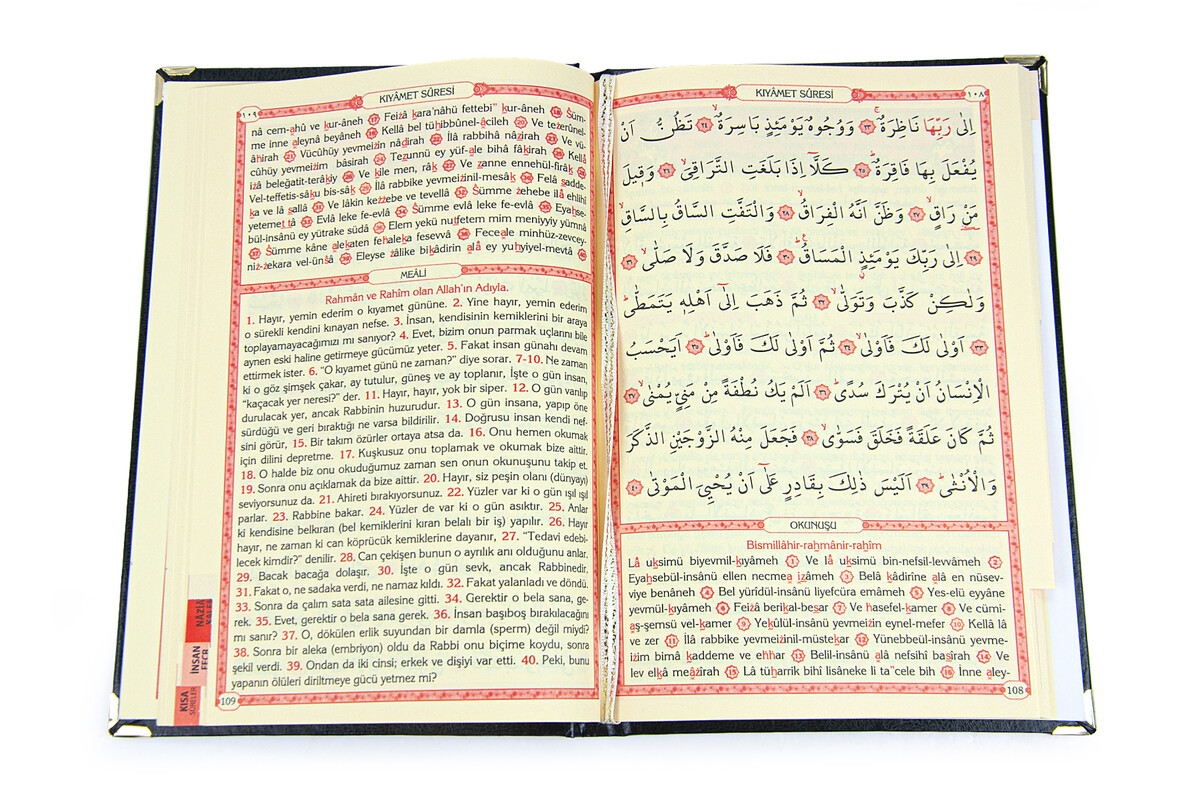 KIYÂMET SÛRESİ
١٠٨
اِلٰى رَبِّهَا نَاظِرَةٌۚ ﴿٢٣﴾ وَوُجُوهٌ يَوْمَئِذٍ بَاسِرَةٌۙ ﴿٢٤﴾ تَظُنُّ اَنْ
يُفْعَلَ بِهَا فَاقِرَةٌۜ ﴿٢٥﴾ كَلَّٓا اِذَا بَلَغَتِ التَّرَاقِيَۙ ﴿٢٦﴾ وَقٖيلَ
مَنْ رَاقٍۙ ﴿٢٧﴾ وَظَنَّ اَنَّهُ الْفِرَاقُۙ ﴿٢٨﴾ وَالْتَفَّتِ السَّاقُ بِالسَّاقِۙ
﴿٢٩﴾ اِلٰى رَبِّكَ يَوْمَئِذٍ الْمَسَاقُۜ ﴿٣٠﴾ فَلَا صَدَّقَ وَلَا صَلّٰىۙ ﴿٣١﴾
وَلٰكِنْ كَذَّبَ وَتَوَلّٰىۙ ﴿٣٢﴾ ثُمَّ ذَهَبَ اِلٰٓى اَهْلِهٖ يَتَمَطّٰىۜ
﴿٣٣﴾ اَوْلٰى لَكَ فَاَوْلٰىۙ ﴿٣٤﴾ ثُمَّ اَوْلٰى لَكَ فَاَوْلٰىۜ ﴿٣٥﴾ اَيَحْسَبُ
الْاِنْسَانُ اَنْ يُتْرَكَ سُدًىۜ ﴿٣٦﴾ اَلَمْ يَكُ نُطْفَةً مِنْ مَنِيٍّ يُمْنٰىۙ ﴿٣٧﴾
ثُمَّ كَانَ عَلَقَةً فَخَلَقَ فَسَوّٰىۙ ﴿٣٨﴾ فَجَعَلَ مِنْهُ الزَّوْجَيْنِ الذَّكَرَ
وَالْاُنْثٰىۜ ﴿٣٩﴾ اَلَيْسَ ذٰلِكَ بِقَادِرٍ عَلٰٓى اَنْ يُحْيِيَ الْمَوْتٰى ﴿٤٠﴾
OKUNUŞU
Bismillâhir-rahmânir-rahîm
Lâ uksimü biyevmil-kıyâmeh (1) Ve lâ uksimü bin-nefsil-levvâmeh (2)
Eyahsebül-insânü ellen necmea ızâmeh (3) Belâ kâdirîne alâ en nüsev-
viye benâneh (4) Bel yürîdül-insânü liyefcüra emâmeh (5) Yes-elü eyyâne
yevmül-kıyâmeh (6) Feizâ berikal-besar (7) Ve hasefel-kamer (8) Ve cümi-
aş-şemsü vel-kamer (9) Yekûlül-insânü yevmeizin eynel-mefer (10) Kellâ lâ
ve zer (11) İlâ rabbike yevmeizinil-müstekar (12) Yünebbeül-insânü yevme-
izim bimâ kaddeme ve ehhar (13) Belil-insânü alâ nefsihî basîrah (14) Ve
lev elkâ meâzîrah (15) Lâ tüharrik bihî lisâneke li ta"cele bih (16) İnne aley-
108
KIYÂMET SÛRESİ
١٠٩
nâ cem-ahû ve kur-âneh (17) Feizâ kara'nâhü fettebi" kur-âneh (18) Süm-
me inne aleynâ beyâneh (19) Kellâ bel tühibbûnel-âcileh (20) Ve tezerûnel-
âhirah (21) Vücûhüy yevmeizin nâdirah (22) İlâ rabbihâ nâzirah (23) Ve vü-
cûhüy yevmeizim bâsirah (24) Tezunnü ey yüf-ale bihâ fâkirah (25) Kellâ
izâ beleğatit-terâkıy (26) Ve kîle men, râk (27) Ve zanne ennehül-firâk (28)
Vel-teffetis-sâku bis-sâk (29) İlâ rabbike yevmeizinil-mesâk (30) Felâ sadde-
ka ve lâ sallâ (31) Ve lâkin kezzebe ve tevellâ (32) Sümme zehebe ilâ ehlihî
yetemettâ (33) Evlâ leke fe-evlâ (34) Sümme evlâ leke fe-evlâ (35) Eyahse-
bül-insânü ey yütrake südâ (36) Elem yekü nutfetem mim meniyyiy yümnâ
(37) Sümme kâne alekaten fehaleka fesevvâ (38) Feceale minhüz-zevcey-
niz-zekara vel-ünsâ (39) Eleyse zâlike bikâdirin alâ ey yuhyiyel-mevtâ (40)
MEÂLİ
Rahmân ve Rahîm olan Allah'ın Adıyla.
1. Hayır, yemin ederim o kıyamet gününe. 2. Yine hayır, yemin ederim
o sürekli kendini kınayan nefse. 3. İnsan, kendisinin kemiklerini bir araya
toplayamayacağımızı mı sanıyor? 4. Evet, bizim onun parmak uçlarını bile
aynen eski haline getirmeye gücümüz yeter. 5. Fakat insan günahı devam
ettirmek ister. 6. "O kıyamet günü ne zaman?" diye sorar. 7-10. Ne zaman
ki o göz şimşek çakar, ay tutulur, güneş ve ay toplanır, İşte o gün insan,
"kaçacak yer neresi?" der. 11. Hayır, hayır, yok bir siper. 12. O gün varılıp
durulacak yer, ancak Rabbinin huzurudur. 13. O gün insana, yapıp öne
sürdüğü ve geri bıraktığı ne varsa bildirilir. 14. Doğrusu insan kendi nef-
sini görür, 15. Bir takım özürler ortaya atsa da. 16. Onu hemen okumak
için dilini depretme. 17. Kuşkusuz onu toplamak ve okumak bize aittir.
18. O halde biz onu okuduğumuz zaman sen onun okunuşunu takip et.
19. Sonra onu açıklamak da bize aittir. 20. Hayır, siz peşin olanı (dünyayı)
seviyorsunuz da. 21. Ahireti bırakıyorsunuz. 22. Yüzler var ki o gün ışıl ışıl
parlar. 23. Rabbine bakar. 24. Yüzler de var ki o gün asıktır. 25. Anlar
ki kendisine belkıran (bel kemiklerini kıran belalı bir iş) yapılır. 26. Hayır
hayır, ne zaman ki can köprücük kemiklerine dayanır, 27. "Tedavi edebi-
lecek kimdir?" denilir. 28. Can çekişen bunun o ayrılık anı olduğunu anlar.
29. Bacak bacağa dolaşır. 30. İşte o gün sevk, ancak Rabbinedir.
31. Fakat o, ne sadaka verdi, ne namaz kıldı. 32. Fakat yalanladı ve döndü.
33. Sonra da çalım sata sata ailesine gitti. 34. Gerektir o bela sana, ge-
rek. 35. Evet, gerektir o bela sana gerek. 36. İnsan başıboş bırakılacağını
mı sanır? 37. O, dökülen erlik suyundan bir damla (sperm) değil miydi?
38. Sonra bir aleka (embriyo) oldu da Rabbi onu biçime koydu, sonra
şekil verdi. 39. Ondan da iki cinsi; erkek ve dişiyi var etti. 40. Peki, bunu
yapanın ölüleri diriltmeye gücü yetmez mi?
109
NÂZİÂT
İNSAN
FECR
KISA
SÛRELER